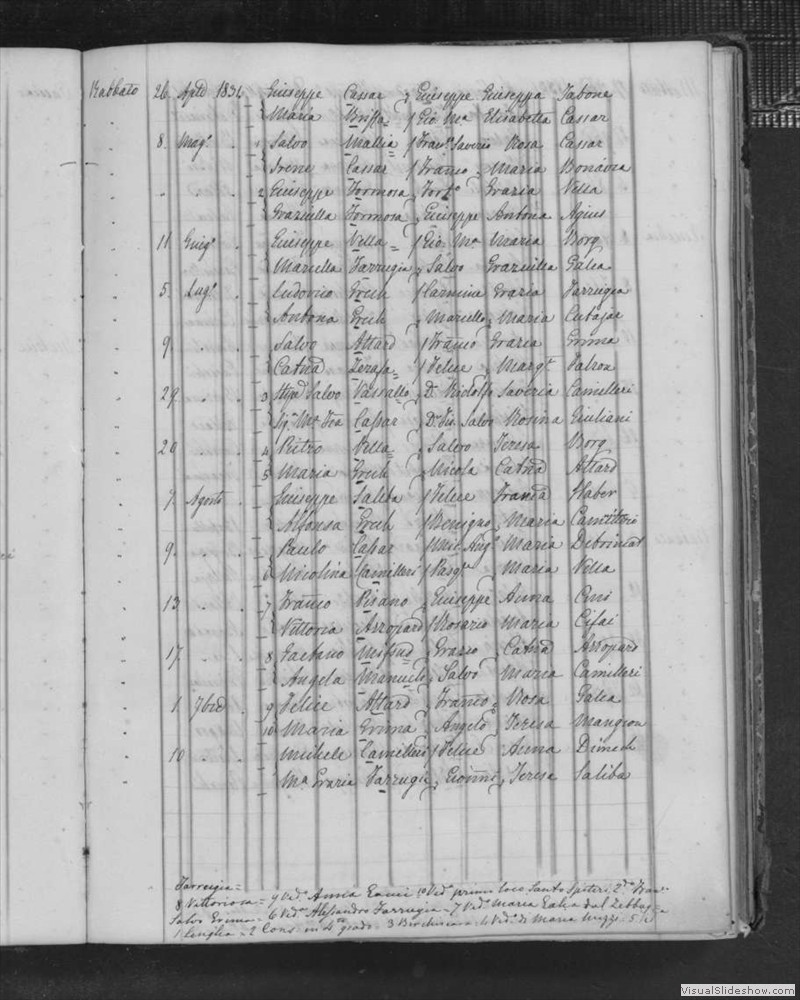 Rabbato 26 Aple 1834 Giuseppe Cassar Giuseppe Giuseppa Tabone
Maria Briffa Gio Ma Elisabetta Cassar
8 Mago 1 Salvo Mallia Saverio Rosa Cassar
Irene Cassar Franco Maria Bonavia
2 Giuseppe Formosa Grazia Vella
Graziulla Formosa Giuseppe Antona Agius
11 Giugo Giuseppe Vella Gio Ma Maria Borg
Marcella Farrugia Salvo Graziulla Galea
5 Lugo Ludovico Grech Carmina Grazia Farrugia
Antona Grech Marcello Maria Cutajar
9 Salvo Attard Franco Grazia Grima
Catna Felice Margta Falzon
29 3 Salvo Vassallo Dr Ridolfo Saveria Camilleri
Sigra Ma Cassar Dr Salvo Rosina Giuliani
20 4 Pietro Vella Salvo Teresa Borg
5 Maria Grech Nicola Catna Attard
7 Agosto Giuseppe Saliba Felice Franca Haber
Alfonsa Grech Benigno Maria
9 Paulo Cassar Mic Ango Maria Debrincat
6 Nicolina Camilleri Pasqe Maria Vella
13 7 Franco Pisano Giuseppe Anna Cini
Vittoria Azzopard Rosario Maria
17 8 Gaetano Mifsud Grazio Catna Azzopard
Angela Manuele Salvo Maria Camilleri
1 7bre 9 Felice Attard Franco Rosa Galea
10 Maria Grima Angelo Teresa Mangion
10 Michele Camilleri Felice Anna Dimech
Ma Grazia Farrugia Gionni Teresa Saliba
Farrugia =
8 Vittoriosa = 9 Veda Anna primi loco Santo Spiteri 2do
Salvo Grima = 6 Veda Alessandro Farrugia = 7 Vedo Maria Galea dal Zebbug
1 Senglea = 2 Cons in 4to grado = 3 = 4 Vedo di Maria
VisualSlideshow.com